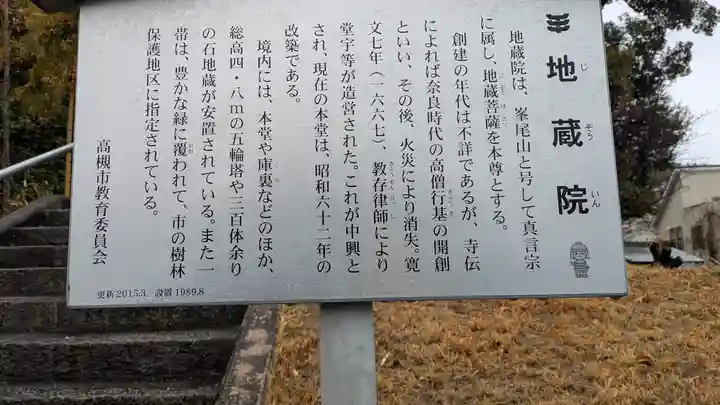 地蔵院
じぞういん
地蔵院は、峯尾山と号して真言宗
に属し、地蔵菩薩を本尊とする。
創建の年代は不詳であるが、寺伝
によれば奈良時代の高僧行基の開創
といい、その後、火災により消失。寛
文七年（一六六七）、教存律師により
堂宇等が造営された。これが中興と
され、現在の本堂は、昭和六十二年の
改築である。
境内には、本堂や庫裏などのほか、
総高四・八mの五輪塔や三百体余り
の石地蔵が安置されている。また一
帯は、豊かな緑に覆われて、市の樹林
保護地区に指定されている。
高槻市教育委員会
更新2015.3 設置1989.8